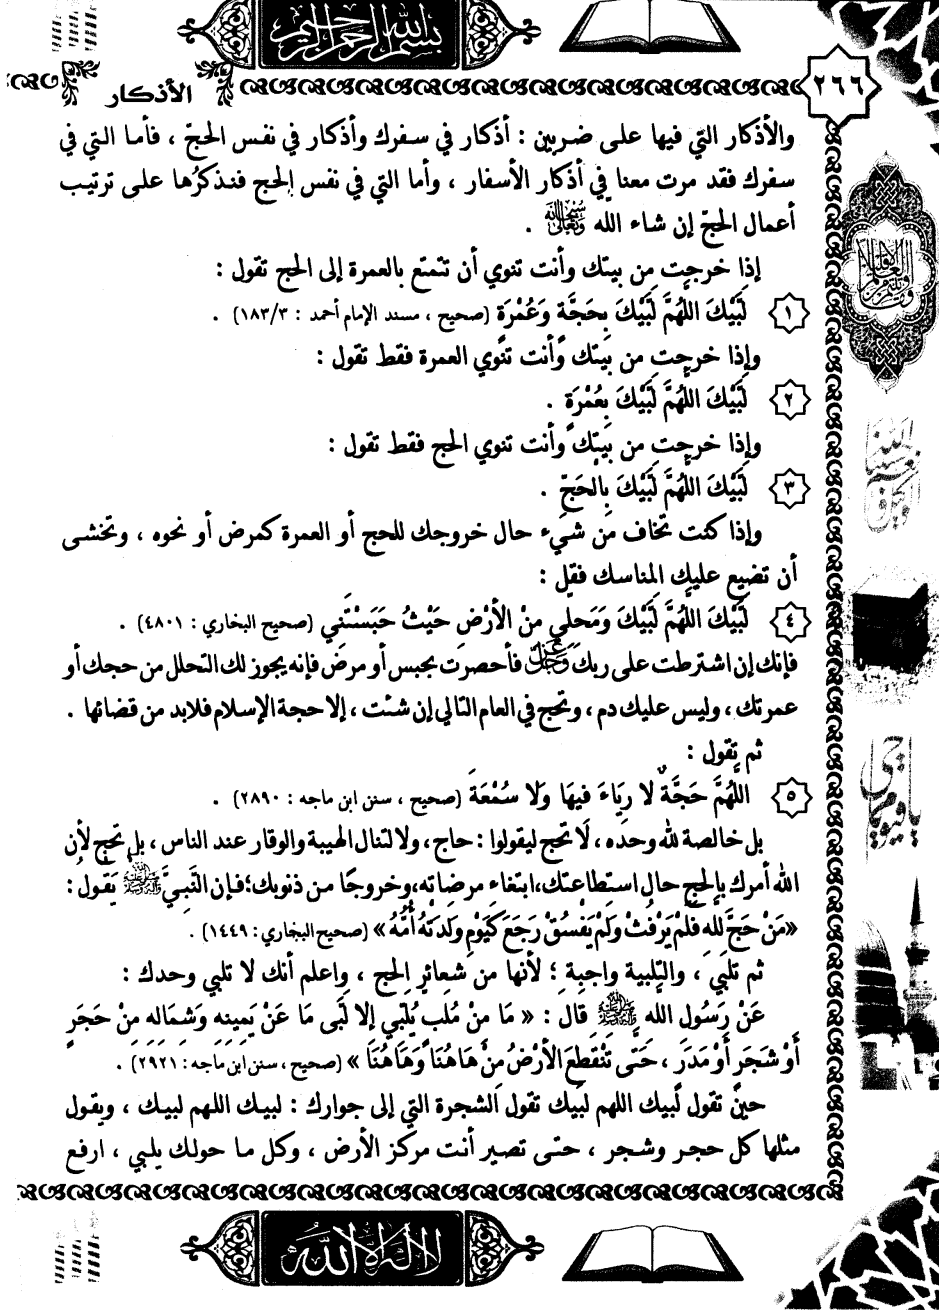 بسم الله الرحمن الرحيم
٢٦٦
الأذكار
والأذكار التي فيها على ضربين : أذكار في سفرك وأذكار في نفس الحجّ ، فأما التي في
سفرك فقد مرت معنا في أذكار الأسفار ، وأما التي في نفس الحج فنذكرُها على ترتيب
أعمال الحجّ إن شاء الله سبحانه وتعالى .
إذا خرجت من بيتك وأنت تنوي أن تتمتع بالعمرة إلى الحج تقول :
١ لَبَّيْكَ اللهُمَّ لَبَّيْكَ بِحَجَّةٍ وَعُمْرَةٍ (صحيح ، مسند الإمام أحمد : ١٨٣/٣) .
وإذا خرجت من بيتك وأنت تنوي العمرة فقط تقول :
٢ لَبَّيْكَ اللهُمَّ لَبَّيْكَ بِعُمْرَةٍ .
وإذا خرجت من بيتك وأنت تنوي الحج فقط تقول :
٣ لَبَّيْكَ اللهُمَّ لَبَّيْكَ بِالحَجِّ .
وإذا كنت تخاف من شيء حال خروجك للحج أو العمرة كمرض أو نحوه ، وتخشى
أن تضيع عليك المناسك فقل :
٤ لَبَّيْكَ اللهُمَّ لَبَّيْكَ وَمَحلي منْ الأَرْضِ حَيْثُ حَبَسْتَني (صحيح البخاري : ٤٨٠١) .
فإنك إن اشترطت على ربك عز وجل فأحصرت بحبس أو مرض فإنه يجوز لك التحلل من حجك أو
عمرتك ، وليس عليك دم ، وتحج في العام التالي إن شئت ، إلا حجة الإسلام فلابد من قضائها .
ثم تقول :
٥ اللهُمَّ حَجَّةٌ لا رِيَاءَ فيهَا وَلا سُمْعَةَ (صحيح ، سنن ابن ماجه : ٢٨٩٠) .
بل خالصة لله وحده ، لا تحج ليقولوا : حاج ، ولا لتنال الهيبة والوقار عند الناس ، بل تحج لأن
الله أمرك بالحج حال استطاعتك، ابتغاء مرضاته، وخروجًا من ذنوبك؛ فإن النَّبيَّ ﷺ يَقُول :
«مَنْ حَجَّ لله فَلَمْ يَرْفُثْ وَلَمْ يَفْسُقْ رَجَعَ كَيَوْمِ وَلَدَتْهُ أُمُّهُ» (صحيح البخاري : ١٤٤٩) .
ثم تلبي ، والتلبية واجبة ؛ لأنها من شعائر الحج ، واعلم أنك لا تلبي وحدك :
عَنْ رَسُول الله ﷺ قالَ : « مَا منْ مُلَبٍّ يُلَبِّي إلا لَبَّى مَا عَنْ يَمينه وَشمَاله منْ حَجَرٍ
أَوْ شَجَرٍ أَوْ مَدَرٍ ، حَتَّى تَنْقَطعَ الأَرْضُ منْ هَاهُنَا وَهَاهُنَا » (صحيح ، سنن ابن ماجه : ٢٩٢١) .
حين تقول لبيك اللهم لبيك تقول الشجرة التي إلى جوارك : لبيك اللهم لبيك ، ويقول
مثلها كل حجر وشجر ، حتى تصير أنت مركز الأرض ، وكل ما حولك يلبي ، ارفع
لا إله إلا الله